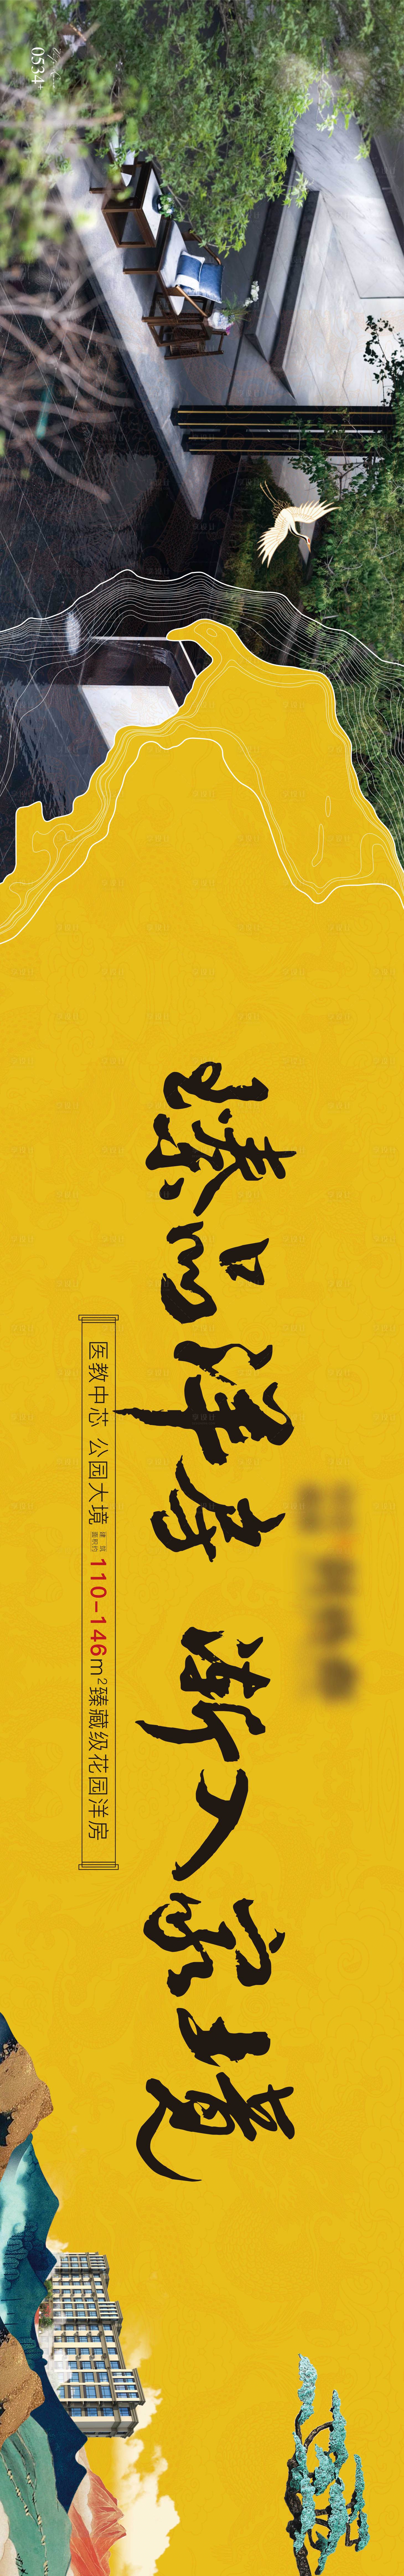 臻品洋房 渐入家境
医教中芯 公园大境 建筑面积约 110-146m²臻藏级花园洋房
0534+